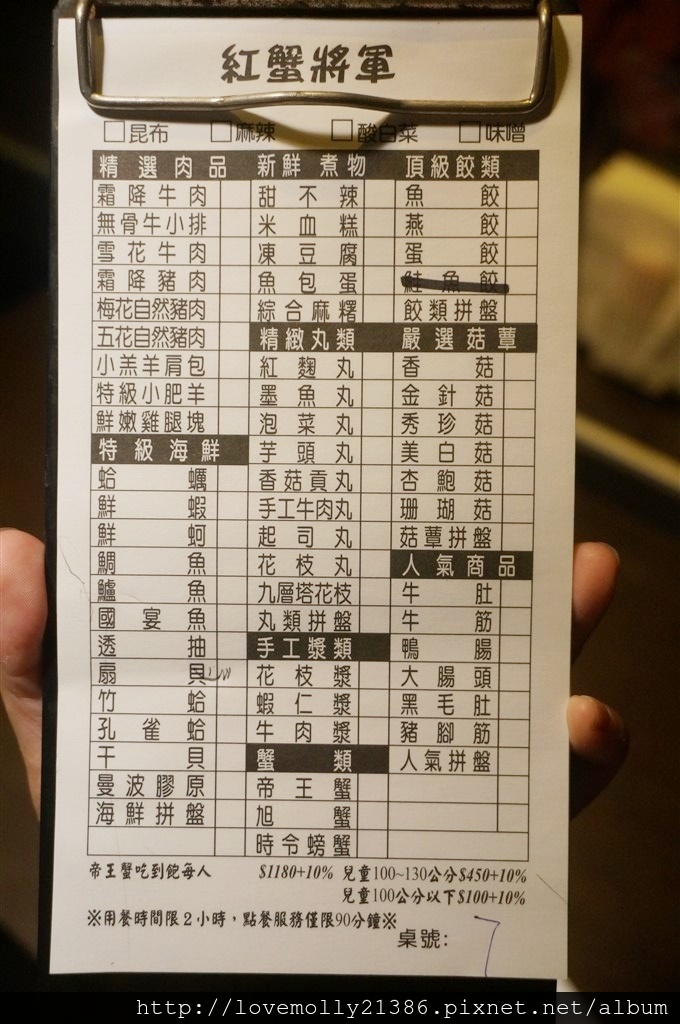 紅蟹將軍
□昆布 □麻辣 □酸白菜 □味噌
精選肉品
霜降牛肉
無骨牛小排
雪花牛肉
霜降豬肉
梅花自然豬肉
五花自然豬肉
小羔羊肩包
特級小肥羊
鮮嫩雞腿塊
特級海鮮
蛤蠣
鮮蝦
鮮蚵
鯛魚
鱸魚
國宴魚
透抽
扇貝
竹蛤
孔雀蛤
干貝
曼波膠原
海鮮拼盤
新鮮煮物
甜不辣
米血糕
凍豆腐
魚包蛋
綜合麻糬
精緻丸類
紅麴丸
墨魚丸
泡菜丸
芋頭丸
香菇貢丸
手工牛肉丸
起司丸
花枝丸
九層塔花枝
丸類拼盤
手工漿類
花枝漿
蝦仁漿
牛肉漿
蟹類
帝王蟹
旭蟹
時令螃蟹
頂級餃類
魚餃
燕餃
蛋餃
鮭魚餃
餃類拼盤
嚴選菇蕈
香菇
金針菇
秀珍菇
美白菇
杏鮑菇
珊瑚菇
菇蕈拼盤
人氣商品
牛肚
牛筋
鴨腸
大腸頭
黑毛肚
豬腳筋
人氣拼盤
帝王蟹吃到飽每人 $1180+10% 兒童100~130公分$450+10%
兒童100公分以下$100+10%
※用餐時間限2小時，點餐服務僅限90分鐘※
桌號: 7
http://lovemolly21386.pixnet.net/album